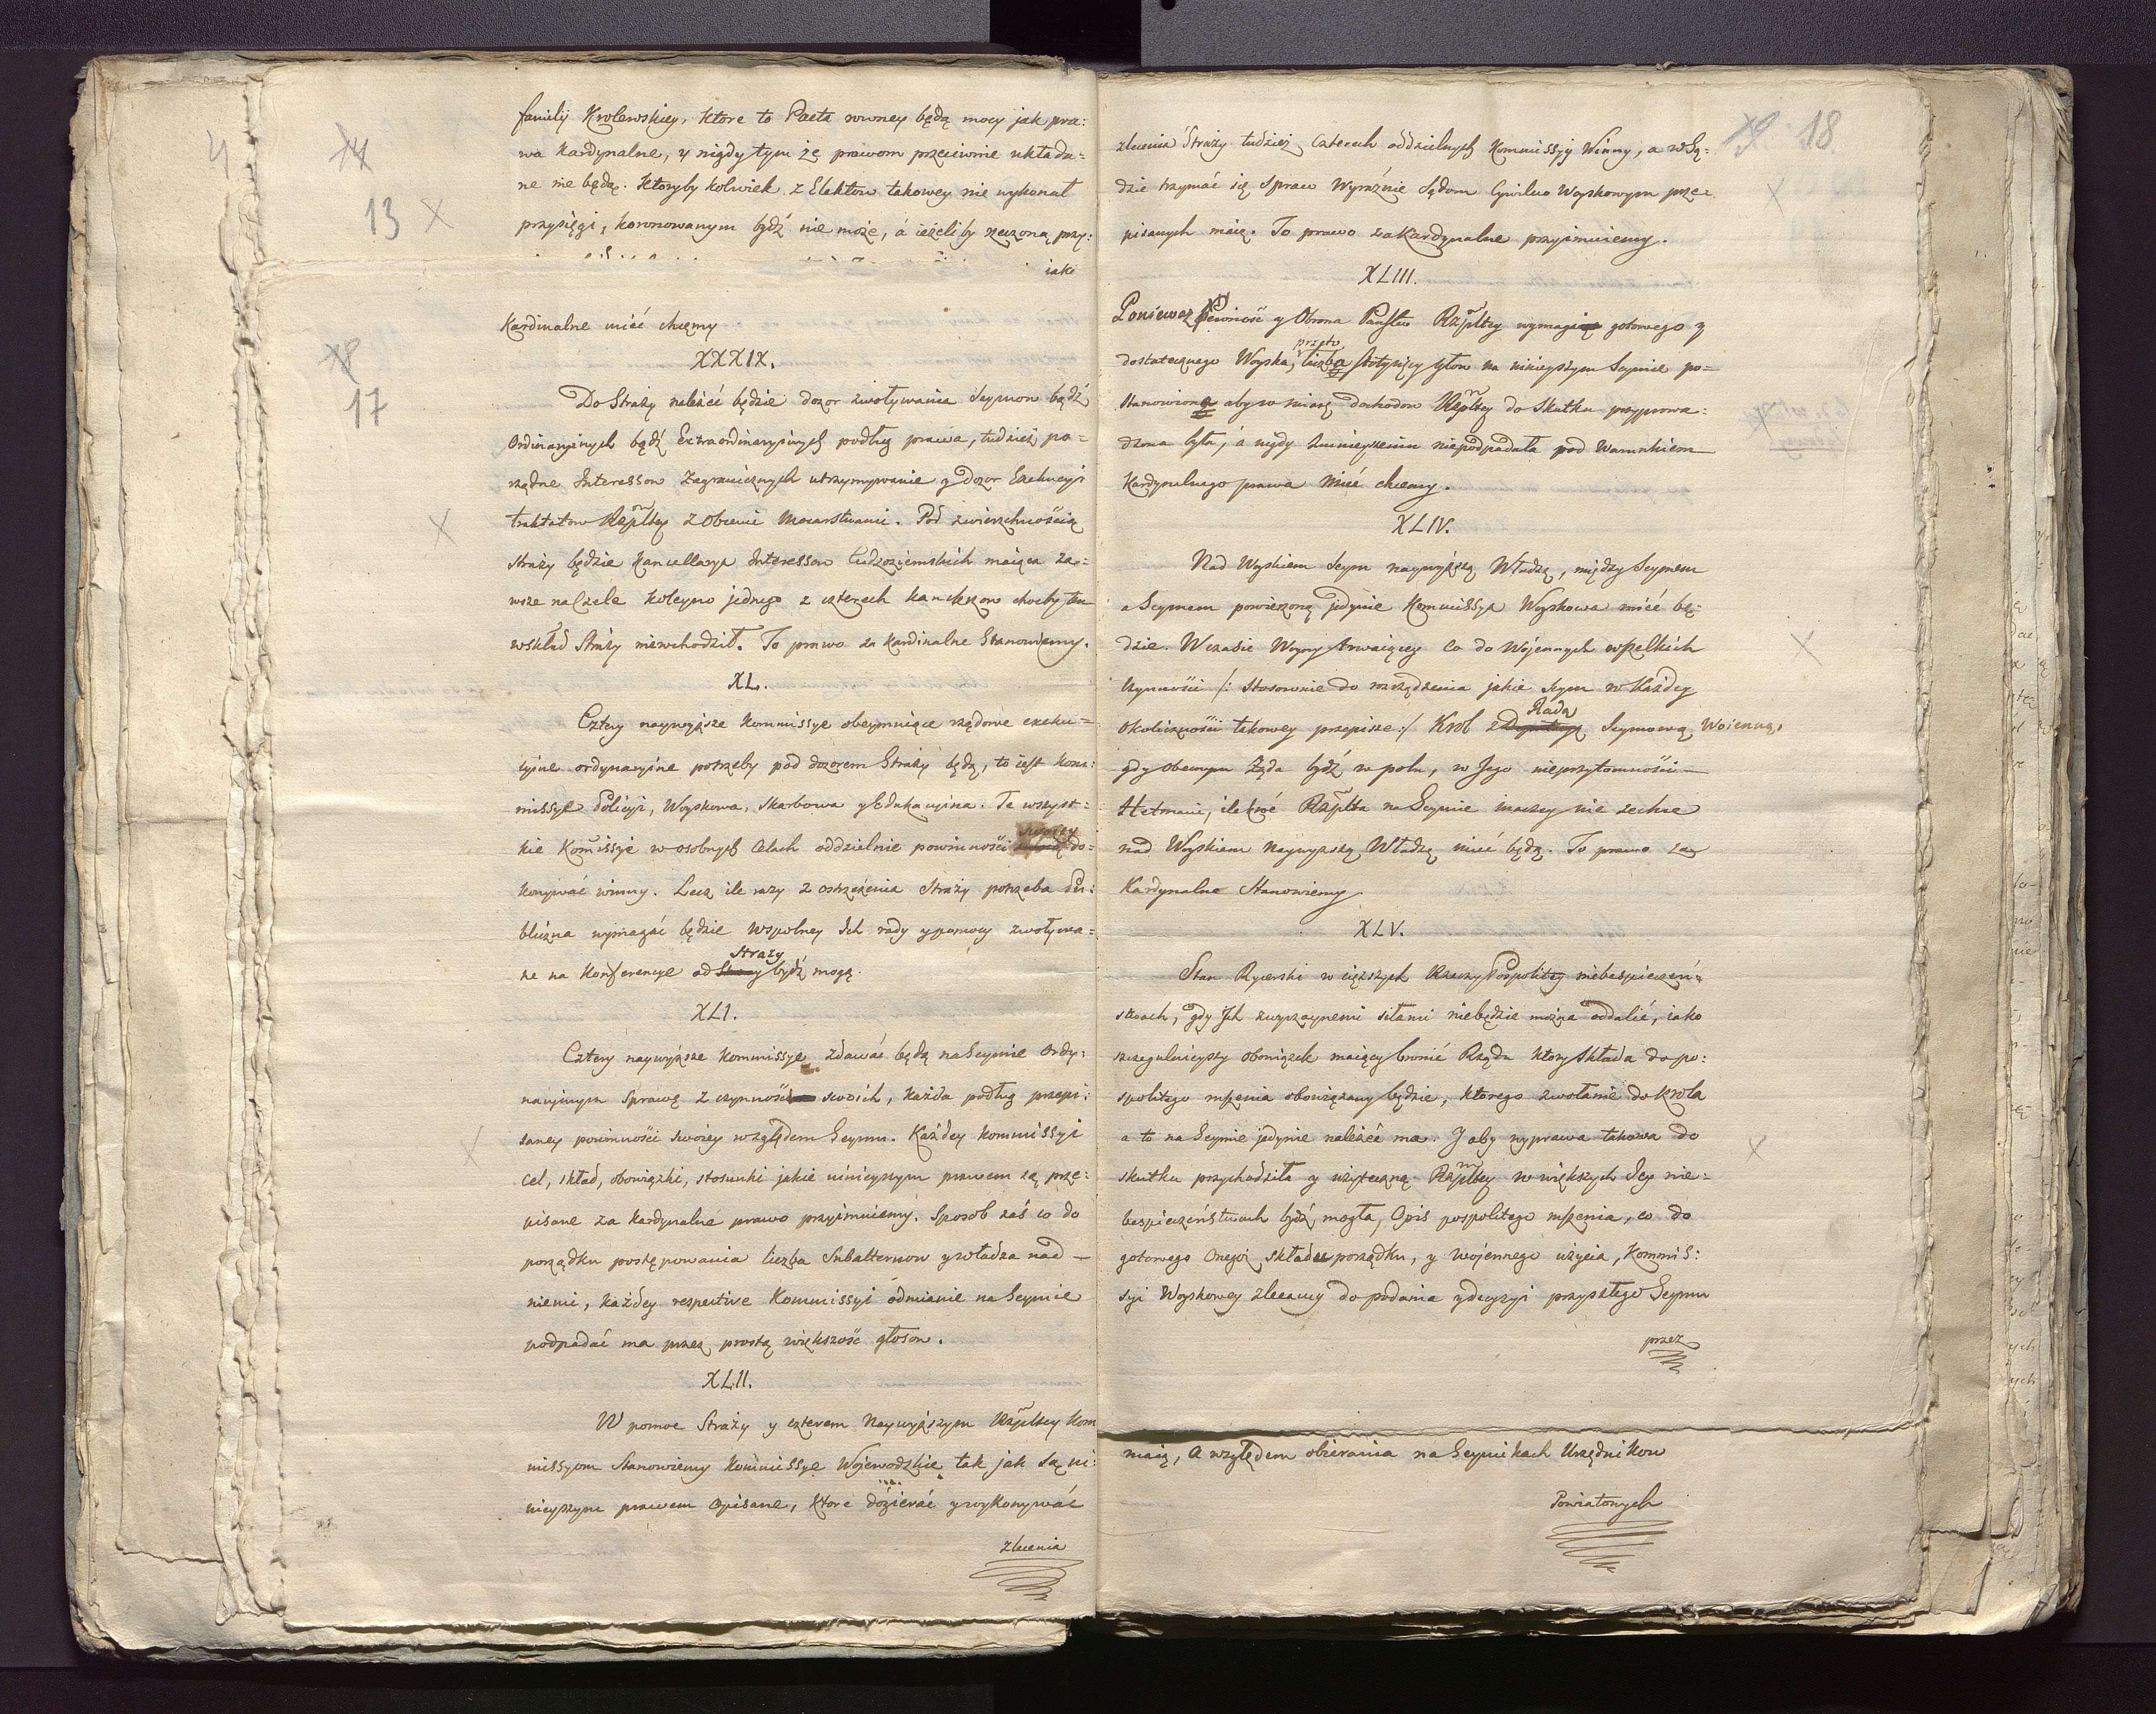 familij Krolewskiey, ktore to Pacta rowney będą mocy jak pra:
wa kardynalne, y nigdy tym że prawom przeciwne układa=
ne nie będą. Ktoryby kolwiek z Elektow takowey nie wykonał
przysięgi, koronowanym bydź nie może, á ieżeliby rzeczoną przy:
iako
13
Kardinalne mieć chcemy
XXXIX.
17
Do Straży należeć będzie dozor zwoływania Seymow bądź
Ordinaryinych bądź Extraordinaryinych podług prawa, tudzież po=
rządne Interessow Zagranicznych utrzymywanie y dozor Exekucyi
traktatow Rzpltey z Obcemi Mocarstwami. Pod zwierzchnością
Straży będzie Kancellarya Interessow Cudzoziemskich maiąca za=
wsze na Czele koleyno jednego z czterech kanclerzow choćby ten
wskład Straży niewchodził. To prawo za Kardinalne Stanowiemy.
XL.
Cztery naywyższe kommissye obeymuiące rządowe exeku=
cyine ordynaryine potrzeby pod dozorem Straży będą, to iest kom:
missye Policyi, Woyskowa, Skarbowa y Edukacyina. Te wszyst=
swoiey
kie Komissye w osobnych Celach oddzielnie powinności do=
konywać winny. Lecz ile razy z ostrzeżenia Straży potrzeba Pu:
bliczna wymagać będzie wspolney Ich rady y pomocy zwoływa=
Straży
ne na Konferencye od bydź mogą.
XLI.
Cztery naywyższe kommissye zdawać będą na Seymie Ordy:
naryinym Sprawę z czynności swoich, każda podług przepi:
saney powinności swoiey względem Seymu. Każdey kommissyi
cel, skład, obowiązki, stosunki jakie ninieyszym prawem są prze:
pisane za kardynalne prawo przyimuiemy. Sposob zaś co do
porządku postępowania liczba Subalternow y władza nad
niemi, każdey respective Kommissyi odmianie na Seymie
podpadać ma przez prostą większość głosow.
XLII.
W pomoc Straży y czterem Naywyższym Rzpltey Kom
missyom Stanowiemy kommissye Wojewodzkie tak jak są ni:
nieyszym prawem opisane, ktore dozierać y wykonywać
zlecenia
18
zlecenia Straży tudzież Czterech oddzielnych Kommissyi Winny, a w Są:
dzie trzymać się Spraw Wyraźnie Sądom Cywilno Woyskowym prze=
pisanych maią. To prawo za Kardynalne przyimuiemy.
XLIII.
Ponieważ Pewność y Obrona Państw Rzpltey wymaga gotowego y
przeto
dostatecznego Woyska, liczba stotysięcy głow na ninieyszym Seymie po=
stanowiona aby w miarę dochodow Rzpltey do skutku przyprowa:
dzona była, á nigdy zmnieyszeniu niepodpadała pod Warunkiem
Kardynalnego prawa Mieć chcemy.
XLIV.
Nad Woyskiem Seym naywyższą Władzę, między Seymem
a Seymem powierzoną jedynie Kommissya Woyskowa mieć bę=
dzie. W czasie Woyny trwaiącey co do Wojennych wszelkich
czynności /: stosownie do rozrządzenia jakie Seym w każdey
Radą
okoliczności takowey przepisze :/ Krol z Seymową Woienną,
gdy obecnym Żąda bydź w polu, w Jego nieprzytomności
Hetmani, ilekroć Rzplta na Seymie inaczey nie zechce
nad Woyskiem naywyższą Władzę mieć będą. To prawo za
Kardynalne Stanowiemy
XLV.
Stan Rycerski w cięższych Rzeczy Pospolitey niebespieczeń=
stwach, gdy Ich zwyczaynemi siłami niebędzie można oddalić, iako
szczegulnieyszy obowiązek maiący bronić Rządu ktory składa do po:
spolitego ruszenia obowiązany będzie, ktorego zwołanie do Krola
a to na Seymie jedynie należeć ma. I aby wyprawa takowa do
skutku przychodziła y użyteczną Rzpltey w większych Iey nie=
bespieczeństwach bydź mogła, Opis pospolitego ruszenia, co do
gotowego Onegoż składu porządku, y wojennego użycia, Kommis:
syi Woyskowey zlecamy do podania y decyzyi przyszłego Seymu
przez
maią, A względem obierania na Seymikach Urzędnikow
Powiatowych